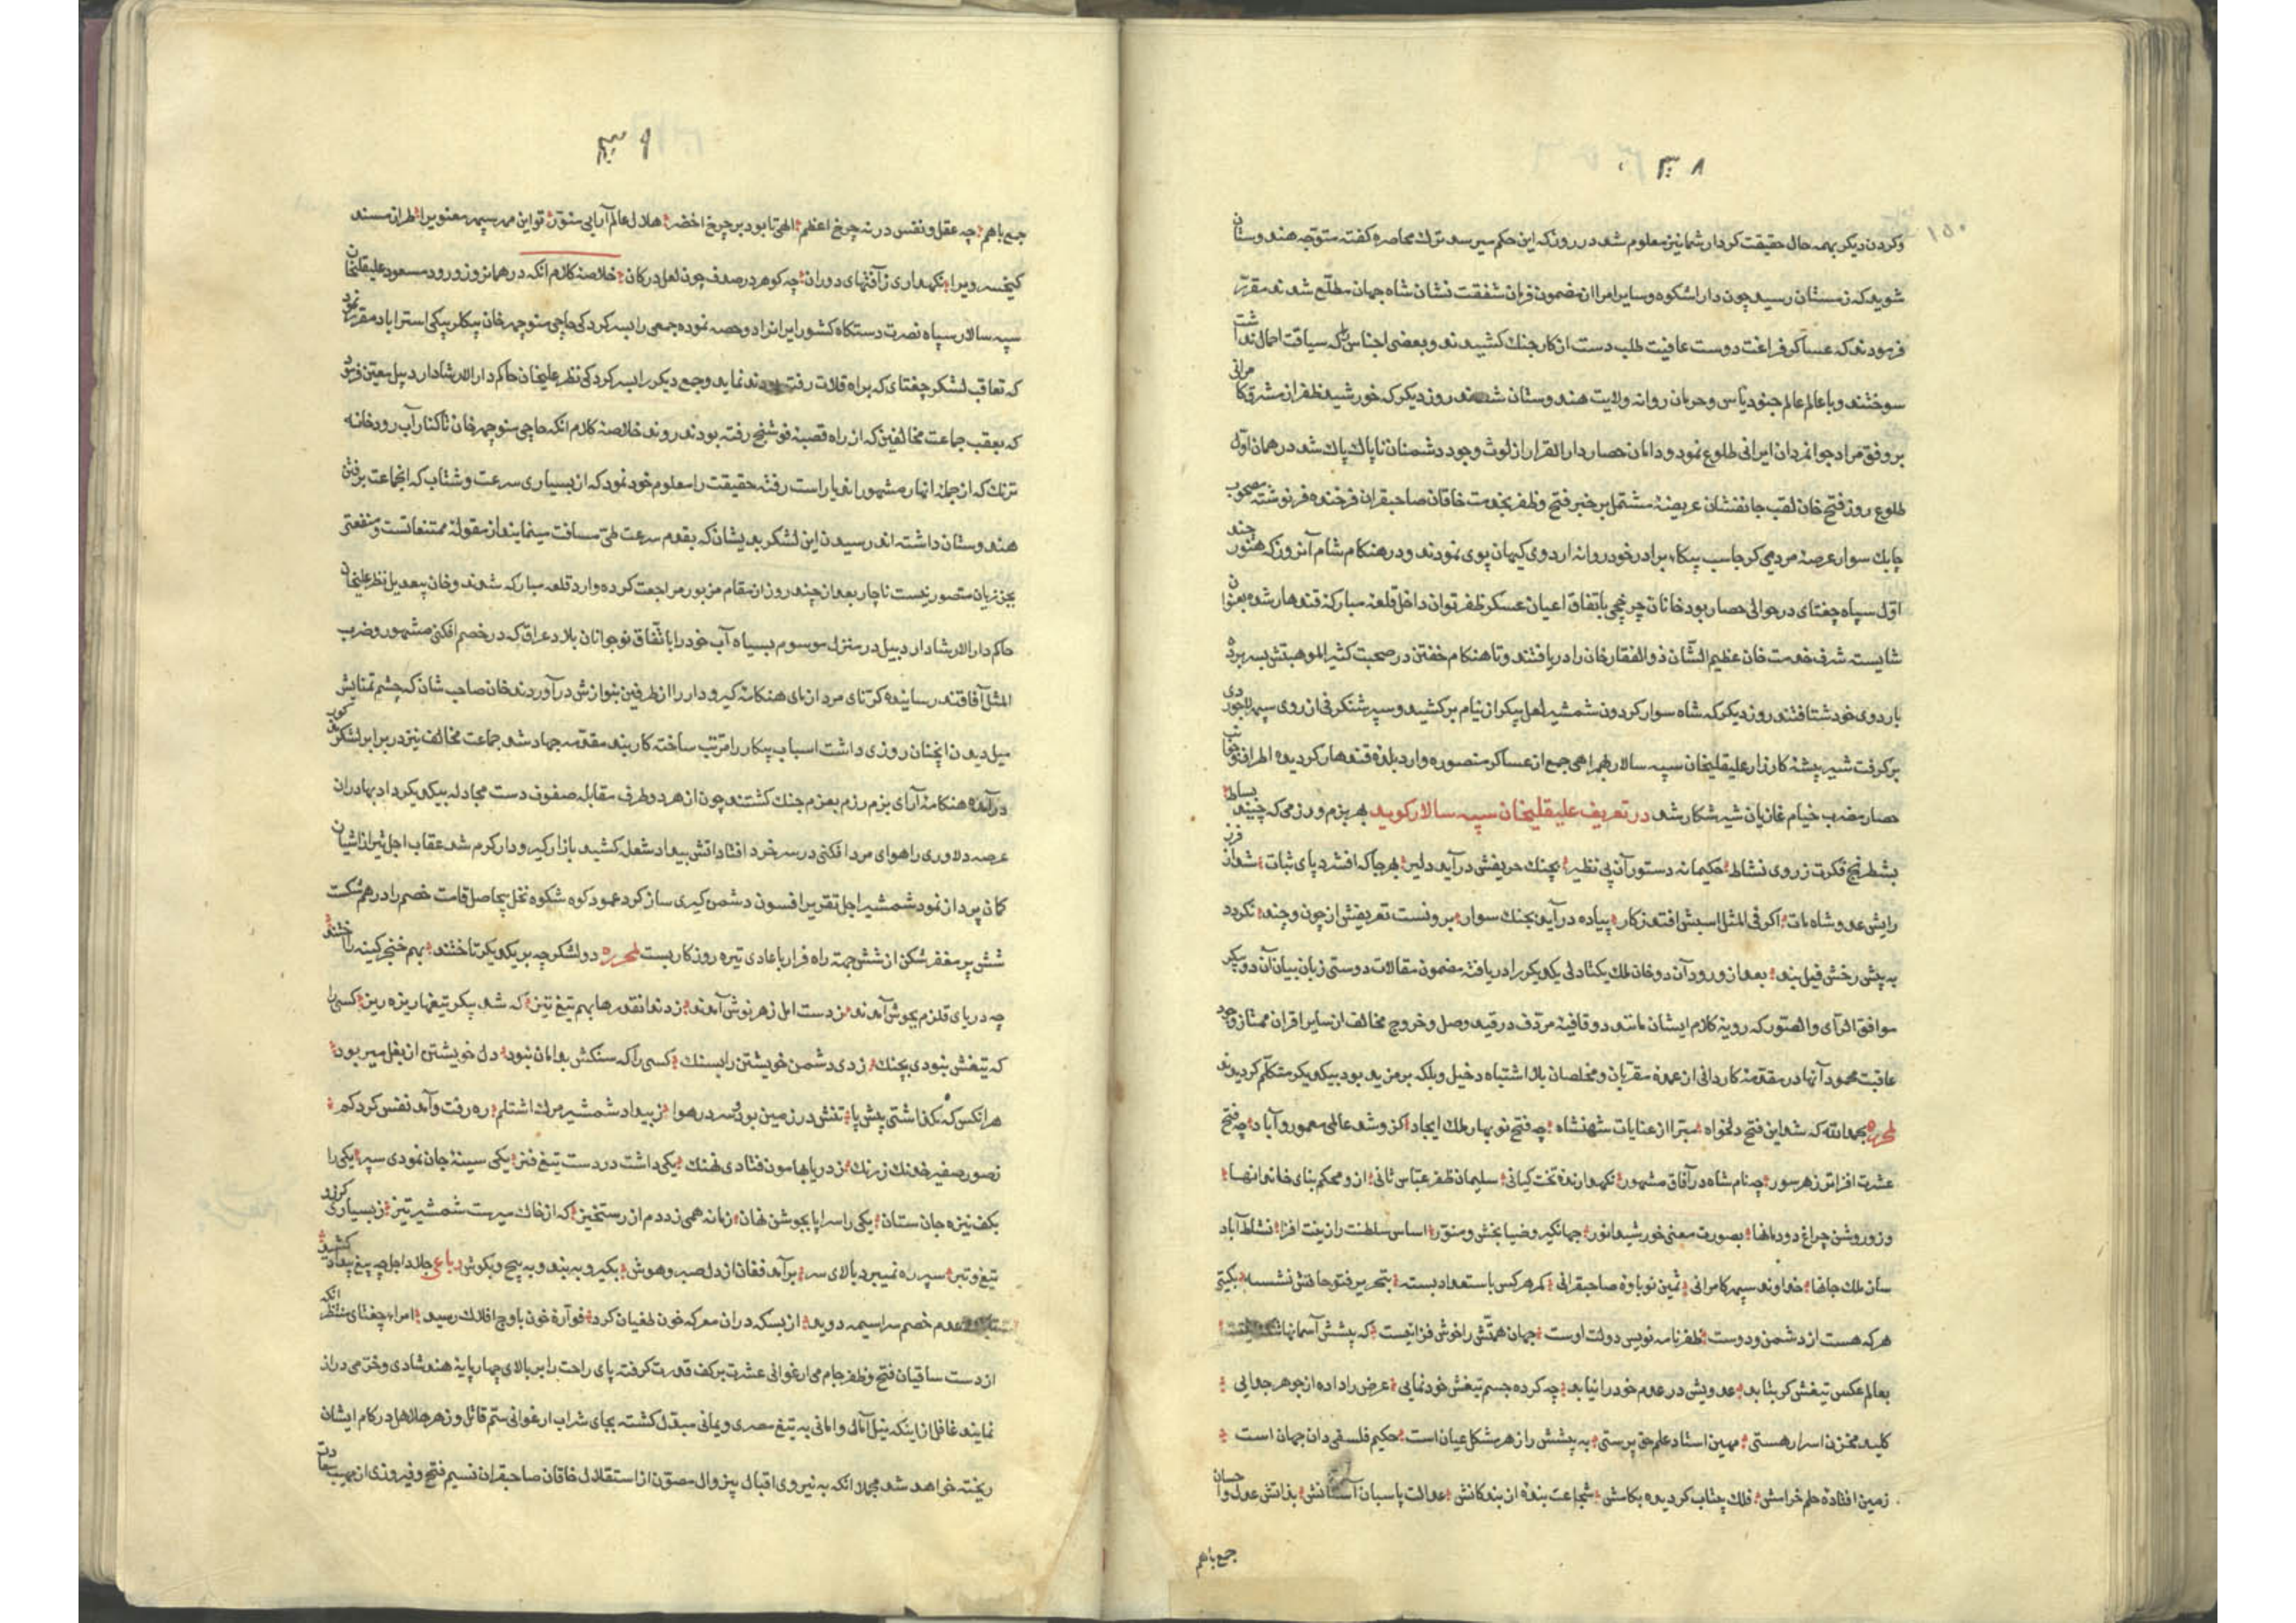 ۳۰۸
وکردن دیکر بهمه حال حقیقت کردار شما نیز معلوم شد در روزی که این حکم میرسد ترك محاصره کفته متوجه هندوستان
شوید که زمستان رسید چون دارا شکوه و سایر امرا از مضمون فرمان شفقت نشان شاه جهان مطلع شدند مقرر
فرمودند که عساکر فراغت دوست عافیت طلب دست از کار جنك کشیدند و بعضی اجناس را که سیاقت احمال نداشت
سوختند و با عالم عالم جنود یأس و حرمان روانه ولایت هندوستان شدند روز دیکر که خورشید ظفر از مشرق کامرانی
بر وفق مراد جوانمردان ایرانی طلوع نمود و دامان حصار دار القرار از لوث وجود دشمنان ناپاك پاك شد در همان اول
طلوع روز فتح خان لقب جانفشان عریضهٔ مشتمل بر خبر فتح و ظفر بخدمت خاقان صاحبقران فرخنده فر نوشته مصحوب
چابك سوار عرصهٔ مردمی کرجاسب بیکا، برادر خود روانه اردوی کیهان پوی نمودند و در هنکام شام آنروز که هنوز چند
اول سپاه چغتای در حوالی حصار بود خانان چرخچی باتفاق اعیان عسکر ظفر توان داخل قلعهٔ مبارکهٔ قندهار شده بعنوان
شایسته شرف خدمت خان عظیم الشان ذوالفقار خان را دریافتند و تا هنکام خفتن در صحبت کثیر الموهبتش بسر برده
باردوی خود شتافتند روز دیکر که شاه سوار کردون شمشیر لعل پیکر از نیام برکشید و سپر شنکرفی از روی سپهر لاجوردی
برکرفت شیر بیشهٔ کارزار علیقلیخان سپه سالار بهمراهی جمع از عساکر منصوره وارد بلدهٔ قندهار کردیده اطراف
حصار مضرب خیام غازیان شیر شکار شد در تعریف علیقلیخان سپه سالار کوید بهر بزم و رزمی که چیند بساط
بشطرنج فکرت ز روی نشاط حکیمانه دستور آن بی نظیر بچنك حریفش درآید دلیر بهرجا که افشرد پای ثبات شد از فرز
رایش عدو شاه مات اکر فی المثل اسبش افتد ز کار پیاده درآید بجنك سوار برونست تعریفش از چون و چند نکردد
به پیش رخش فیل بند بعد از ورود آن دو خان ملك یکتادلی یکدیکر را دریافته مضمون مقالات دوستی زبان بیان آن دو پیکر
موافق الرأی و التصور که رویهٔ کلام ایشان مانند دو قافیهٔ مردف در قید وصل و خروج مخالف از سایر اقران ممتاز وجود
عاقبت محمود آنها در مقدمهٔ کاردانی از عمده مقربان و مخلصان بلا اشتباه دخیل و بلکه بر مزید بود بیکدیکر متکلم کردیدند
لمحرره بحمدالله که شد این فتح دلخواه میسر از عنایات شهنشاه چه فتح نو بهار ملك ایجاد کزو شد عالمی معمور و آباد چه فتح
عشرت افزاتر ز هر سور چه نام شاه در آفاق مشهور نکهدارندهٔ تخت کیانی سلیمان ظفر عباس ثانی ازو محکم بنای خاندانها
وزو روشن چراغ دودمانها بصورت معنی خورشید انور جهانکیر و ضیا بخش و منور اساس سلطنت را زینت افزا نشاط آباد
سان ملك جانها خداوند سپهر کامرانی ثمین نوباوهٔ صاحبقرانی کمر هر کس باستعداد بسته بتحریر فتوحاتش نشسته بکیتی
هرکه هست از دشمن و دوست ظفرنامه نویس دولت اوست جهان همتش را خوش فزائیست که پیشش آسمانها
بعالم عکس تیغش کر بتابد عدویش در عدم خود را نیابد چه کرده جسم تیغش خودنمایی عرض را داده از جوهر جدایی
کلید مخزن اسرار هستی مهین استاد علم حق پرستی به پیشش راز هر مشکل عیان است حکیم فلسفی دان جهان است
زمین افتادهٔ حلم خرامش فلك بیتاب کردیده بکامش شجاعت بندهٔ از بندکانش عدالت پاسبان آستانش بذاتش عدل و احسان
جمع باهم
۳۰۹
جمع باهم چه عقل و نفس در نه چرخ اعظم الهی تا بود بر چرخ اخضر هلال عالم آرایی منور تو این مهر سپهر معنویرا طراز مسند
کیخسرویرا نکهداری ز آفتهای دوران چه کوهر در صدف چون لعل در کان خلاصه کلام آنکه در همانروز ورود مسعود علیقلیخان
سپه سالار سپاه نصرت دستکاه کشور ایرانرا دو حصه نموده جمعی را بسرکردکی حاجی منوچهر خان بیکلربیکی استراباد مقرر نمود
که تعاقب لشکر چغتای که براه قلات رفته بودند نماید و جمع دیکر را بسرکردکی نظر علیخان حاکم دار الارشاد اردبیل معین فرمود
که بعقب جماعت مخالفین که از راه قصبهٔ فوشنج رفته بودند روند خلاصهٔ کلام آنکه حاجی منوچهر خان تا کنار آب رودخانه
ترنك که از جمله انهار مشهور آندیار است رفته حقیقت را معلوم خود نمود که از بسیاری سرعت و شتاب که آنجماعت برفتن
هندوستان داشته اند رسیدن این لشکر بدیشان که بقدم سرعت طی مسافت مینمایند از مقولهٔ ممتنعاتست و منفعتی
بجز زیان متصور نیست ناچار بعد از چند روز از مقام مزبور مراجعت کرده وارد قلعه مبارکه شدند و خان بیعدیل نظر علیخان
حاکم دار الارشاد اردبیل در منزل موسوم بسیاه آب خود را باتفاق نوجوانان بلاد عراق که در خصم افکنی مشهور و ضرب
المثل آفاقند رسانیده کرنای مرد آزمای هنکامهٔ کیرودار را از طرفین بنوازش درآوردند خان صاحب شان که چشم تمنایش
میل دیدن آنچنان روزی داشت اسباب پیکار را مرتب ساخته کاربند مقدمه جهاد شد جماعت مخالف نیز در برابر لشکر
درآمده هنکامه آرای بزم رزم بعزم جنك کشتند چون از هر دو طرف مقابله صفوف دست مجادله بیکدیکر داد بهادران
عرصه دلاوری را هوای مرد افکنی در سر خرد افتاد آتش بیداد شعله کشید بازار کیرودار کرم شد عقاب اجل تیر از آشیان
کمان پرداز نمود شمشیر اجل تقریر افسون دشمن کیری ساز کرد عمود کوه شکوه نخل بیحاصل قامت خصم را در هم شکست
شش پر مغفر شکن از شش جهة راه فرار باعادی تیره روزکار بست لمحرره دو لشکر چه بر یکدیکر تاختند بهم خنجر کینه را آختند
چه دریای قلزم بجوش آمدند ز دست اجل زهر نوش آمدند زدند آنقدرها بهم تیغ تیز که شد پیکر تیغها ریز ریز کسی را
که تیغش نبودی بچنك زدی دشمن خویشتن را بسنك کسی را که سنکش بدامان نبود دل خویشتن از بغل میربود
هر آنکس که نکذاشتی پیش پا تنش در زمین بود و سر در هوا ز بیداد شمشیر مرك اشتلم ره رفت و آمد نفس کرد کم
ز صور صفیر خدنك زرنك ز دریا بهامون فتادی نهنك یکی داشت در دست تیغ فتن یکی سینهٔ جان نمودی سپر یکی را
بکف نیزه جان ستان یکی را سراپا بجوشن نهان زمانه همی زد دم از رستخیز که از خاك میرست شمشیر تیز ز بسیاری
تیغ و تبر سپر ره نمیبرد بالای سر برآمد فغان از دل صبر و هوش بکیر و به بند و به پیچ و بکوش رباعی جلاد اجل چه تیغ بیداد کشید
عدم خصم سراسیمه دوید از بسکه دران معرکه خون طغیان کرد فوآرهٔ خون باوج افلاك رسید امراء چغتای منتظر آنکه
از دست ساقیان فتح و ظفر جام می ارغوانی عشرت برکف قدرت کرفته پای راحت را بر بالای چهارپایهٔ هند شادی و خرمی دراز
نمایند غافل از اینکه نیل آمال و امانی به تیغ مصری و یمانی مبدل کشته بجای شراب ارغوانی ستم قاتل و زهر هلاهل در کام ایشان
ریخته خواهد شد مجملا آنکه به نیروی اقبال بیزوال مصون از استقلال خاقان صاحبقران نسیم فتح و فیروزی از مهب سعادت